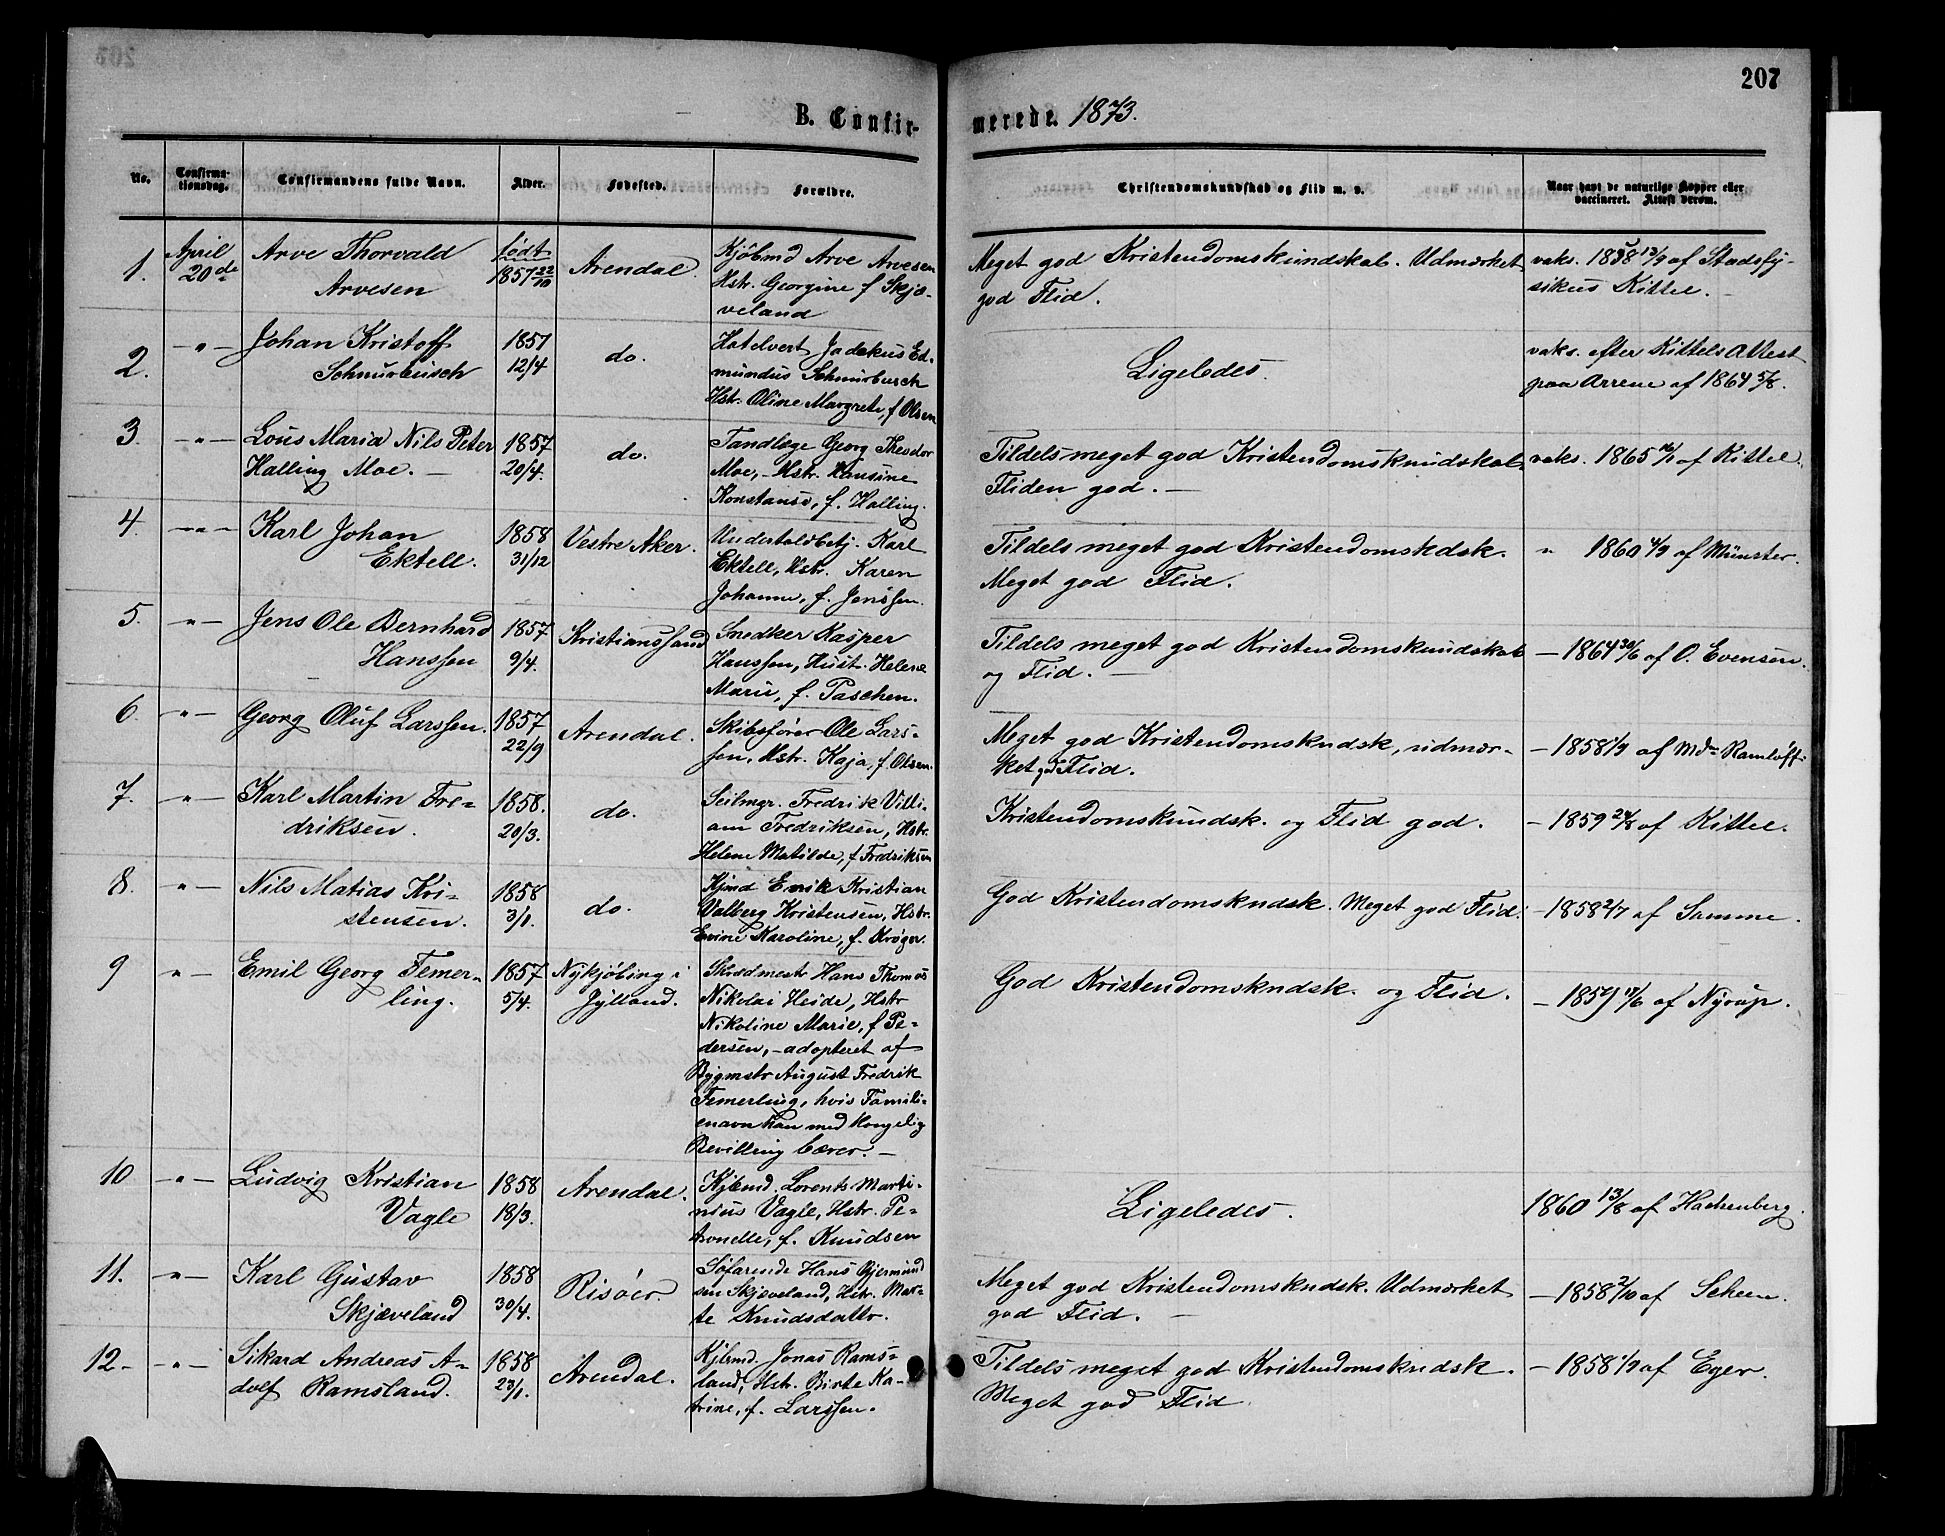 207
B. Confirmerede. 1873.
No.
Confirmationsdag.
Confirmandens fulde Navn.
Alder.
Fødested.
Forældre.
Christendomskundskab og Flid m. v.
Naar havt de naturlige Kopper eller
vaccineret. Attest derom.
1.
April
20de
Arve Thorvald
Arvesen
født
1857 22/10
Arendal
Kjøbmd Arve Arvesen
Hstr. Georgine f. Skjæ-
veland
Meget god Kristendomskundskab. Udmærket
god Flid.
vaks. 1858 13/9 af Stadsfy-
sikus Kittel.
2.
-"-
Johan Kristoff
Schnurbusch
1857
12/4
do.
Hotelvert Jodokus Ed-
mundus Schnurbusch
Hstr. Oline Margrete, f. Olsen
Ligeledes.
vaks. efter Kittels Attest
paa Arrene af 1864 5/8.
3.
-"-
Lous Maria Nils Peter
Halling Moe.
1857
20/4.
do.
Tandlæge Georg Theodor
Moe, - Hstr. Hansine
Konstanse, f. Halling.
Tildels meget god Kristendomskundskab
Fliden god.
vaks. 1865 16/1 af Kittel.
4.
-"-
Karl Johan
Ektell.
1858
31/12
Vestre Aker.
Undertoldbetj. Karl
Ektell, Hstr. Karen
Johanne, f. Jonssen.
Tildels meget god Kristendomskdsk.
Meget god Flid.
" 1860 4/9 af Münster.
5.
-"-
Jens Ole Bernhard
Hanssen
1857
9/4.
Kristianssand
Snedker Kasper
Hanssen, Hust. Helene
Marie, f. Paschen.
Tildels meget god Kristendomskundskab
og Flid.
- 1864 30/6 af O. Evensen.
6.
-"-
Georg Oluf Larssen.
1857
22/9
Arendal.
Skibsfører Ole Lars-
sen, Hstr. Kaja, f. Olsen.
Meget god Kristendomskndsk, udmær-
ket god Flid.
- 1858 1/9 af Mdm Ramløff.
7.
-"-
Karl Martin Fre-
driksen.
1858.
20/3.
do.
Seilmgr. Fredrik Villi-
am Fredriksen, Hstr.
Helene Matilde, f. Fredriksen
Kristendomskundsk. og Flid god.
- 1859 24/8 af Kittel.
8.
-"-
Nils Matias Kri-
stensen.
1858
3/1.
do.
Kjmd Erik Kristian
Valberg Kristensen, Hstr.
Evine Karoline, f. Krøger.
God Kristendomskndsk. Meget god Flid.
- 1858 2/7 af Samme.
9
-"-
Emil Georg Femer-
ling.
1857
5/4.
Nykjøbing i
Jylland.
Skrædmestr Hans Thomas
Nikolai Heide, Hstr
Nikoline Marie, f. Pe-
dersen, - adopteret af
Bygmstr August Fredrik
Femerling, hvis Famili-
enavn han med Kongelig
Bevilling bærer. -
God Kristendomskndsk. og Flid.
- 1859 17/6 af Nyrup.
10
-"-
Ludvig Kristian
Vagle
1858
18/3.
Arendal.
Kjbmd. Lorents Marti-
nius Vagle, Hstr. Pe-
tronelle, f. Knudsen
Ligeledes.
1860 13/8 af Hachenberg.
11.
-"-
Karl Gustav
Skjæveland
1858
30/4.
Risøer.
Søfarende Hans Gjermund
sen Skjæveland, Hstr. Mar-
te Knudsdattr.
Meget god Kristendomskndsk. Udmærket
god Flid.
- 1858 2/10 af Scheen.
12-
-"-
Sikard Andreas A-
dolf Ramsland.
1858
23/1.
Arendal.
Kjbmd. Jonas Rams-
land, Hstr. Birte Ka-
trine, f. Larssen.
Tildels meget god Kristendomskndsk.
Meget god Flid.
- 1858 1/9 af Eger.